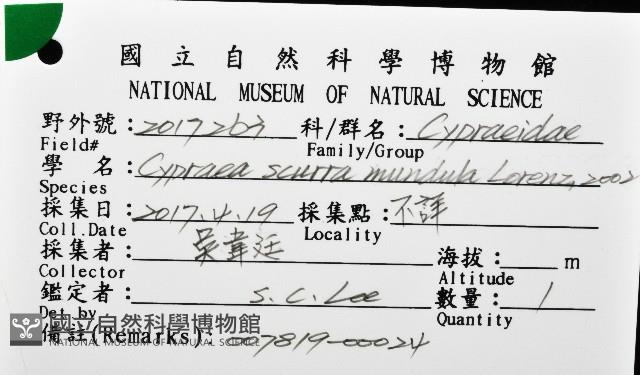 國立自然科學博物館
NATIONAL MUSEUM OF NATURAL SCIENCE
野外號: 2017263 科/群名: Cypraeidae
Field# Family/Group
學 名: Cypraea scurra mundula Lorenz, 2002
Species
採集日: 2017.4.19 採集點: 不詳
Coll.Date Locality
採集者: 吳韋廷 海拔: m
Collector Altitude
鑑定者: S.C. Lee 數量: 1
Det by Quantity
備註(Remarks): 007819-00024
國立自然科學博物館
NATIONAL MUSEUM OF NATURAL SCIENCE